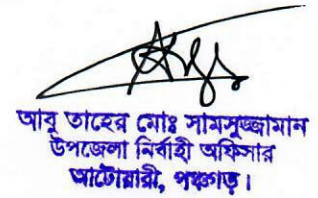 আবু তাহের মোঃ সামসুজ্জামান
উপজেলা নির্বাহী অফিসার
আটোয়ারী, পঞ্চগড়।